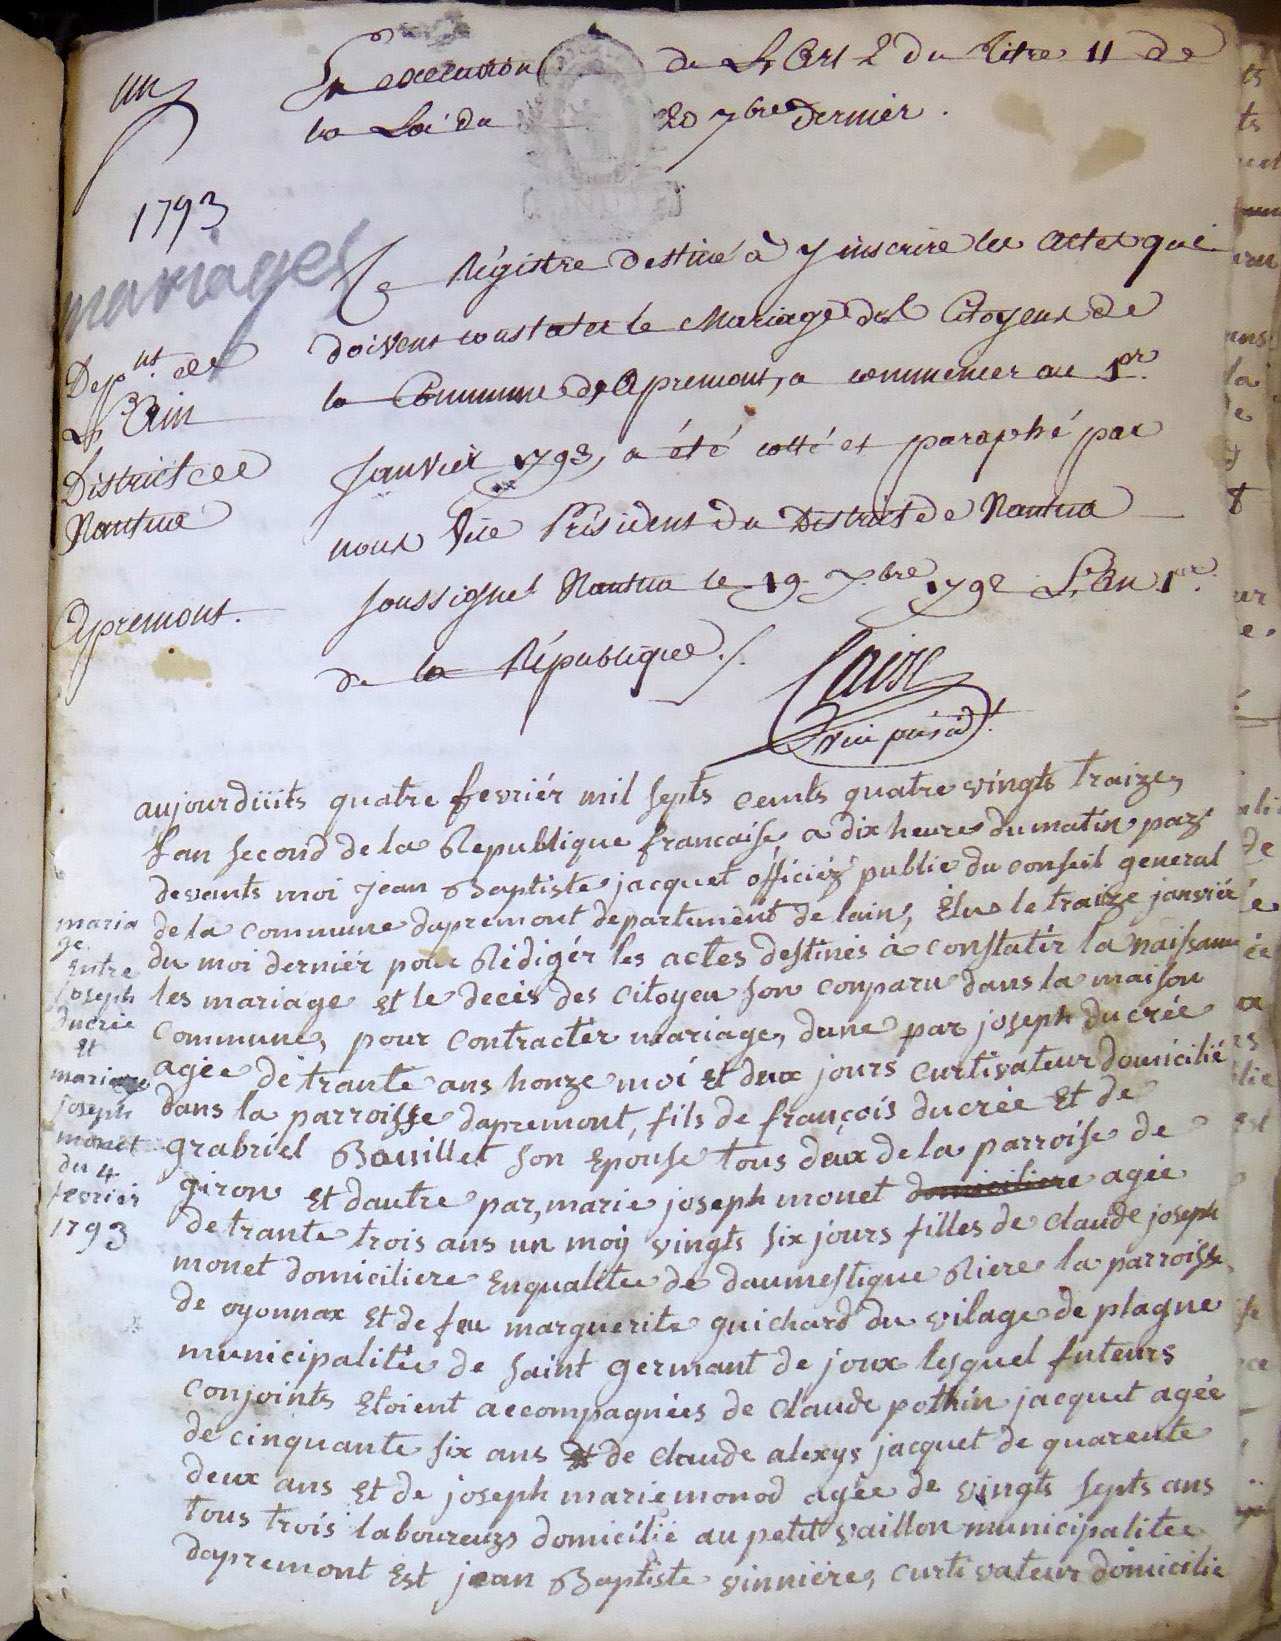 un
En execution de L'Art 2 du Titre 11 de
la Loi du 20 7bre dernier.
1793
mariages
Ce Régistre destiné à y inscrire les Actes qui
doivent constater le Mariage des Citoyens de
la Commune d'Apremont, a commencer au 1er.
Janvier 1793, a été cotté et paraphé par
nous Vice Président du District de Nantua
soussigné Nantua le 19 Xbre 1792 L'An 1er.
de la République ./.
Depnt. de
L'Ain
District de
Nantua
Apremont.
vice présidt.
aujourdüits quatre fevriér mil septs cemts quatre vingts traize,
lan second de la Republique francaise, a dix heures du matin par
devants moi jean Baptiste jacquet officiér public du conseil general
de la commune dapremont departement de lain, Elus le traize janviér
du moi derniér pour Rédigér les actes destinés à constatér la naissance
les mariage et le decés des citoyen son conparu dans la maison
commune, pour contractér mariage, dune par joseph ducrée
agée de trante ans honze moi et deux jours curtivateur domicilié
dans la parroisse dapremont, fils de françois ducrée Et de
grabriel Bouillet son Epouse tous deux de la parroise de
giron Et dautre par, marie joseph monet domiciliere agée
de trante trois ans un moy vingts six jours filles de claude joseph
monet domiciliere Enqualitée de daumestique Riere la parroisse
de oyonnax Et de feu marguerite guichard du vilage de plagne
municipalitée de saint germant de joux lesquel futeurs
conjoints Etoient accompagnées de claude pothin jacquet agée
de cinquante six ans et de claude alexys jacquet de quarente
deux ans Et de joseph marie monod agée de vingts septs ans
tous trois laboureurs domicilié au petit vaillon municipalitée
dapremont Est jean Baptiste vinniére, curtivateur domicilie
maria
ge
Entre
joseph
ducrée
Et
mariare
joseph
monet
du 4
fevriér
1793